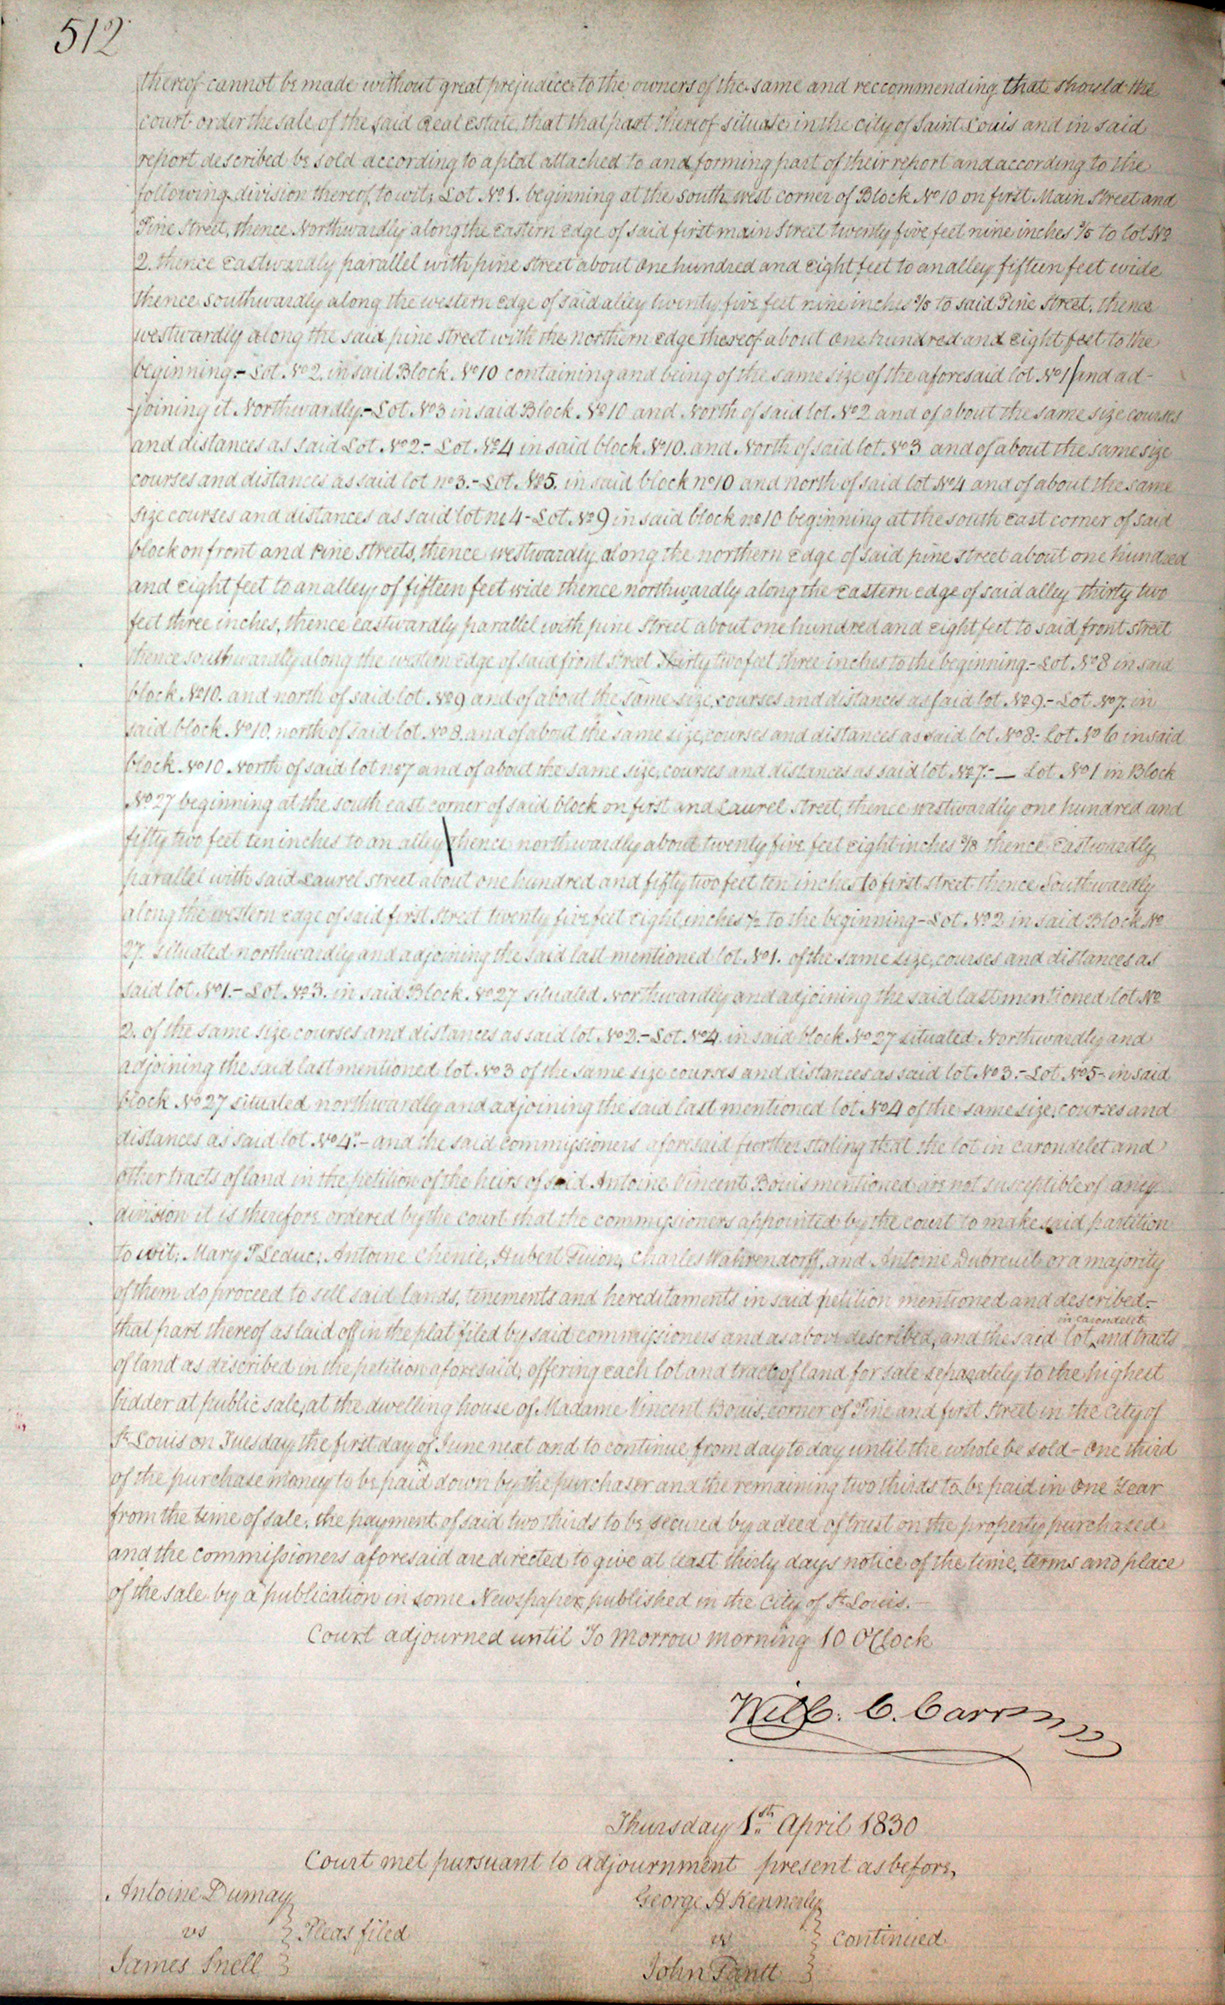 512
thereof cannot be made without great prejudice to the owners of the same and reccommending that should the
court order the sale of the said Real Estate, that that part thereof situate in the city of Saint Louis and in said
report described be sold according to a plat attached to and forming part of their report and according to the
following division thereof, to wit; Lot No 1. beginning at the south west corner of Block No 10 on first Main Street and
Pine Street, thence Northwardly along the Eastern Edge of said first main Street twenty five feet nine inches to lot No
2. thence Eastwardly parallel with pine street about One hundred and Eight feet to an alley fifteen feet wide
thence southwardly along the western edge of said alley twenty five feet nine inches to said Pine Street, thence
westwardly along the said pine street with the northern Edge thereof about One hundred and Eight feet to the
beginning.- Lot No 2, in said Block No 10 containing and being of the same size of the aforesaid lot No 1 / and ad-
-joining it Northwardly.- Lot No 3 in said Block No 10 and North of said lot No 2 and of about the same size courses
and distances as said Lot No 2.- Lot No 4 in said block No 10. and North of said lot No 3 and of about the same size
courses and distances as said lot no 3.- Lot No 5. in said block no 10 and north of said lot No 4 and of about the same
size courses and distances as said lot no 4- Lot No 9 in said block no 10 beginning at the south East corner of said
block on front and Pine streets, thence westwardly along the northern Edge of said pine street about one hundred
and Eight feet to an alley of fifteen feet wide thence northwardly along the Eastern edge of said alley thirty two
feet three inches, thence eastwardly parallel with pine Street about one hundred and Eight feet to said front street
thence southwardly along the western Edge of said front Street thirty two feet three inches to the beginning.- Lot No 8 in said
block No 10. and north of said lot No 9 and of about the same size, courses and distances as said lot No 9.- Lot No 7. in
said block No 10, north of said lot No 8. and of about the same size, courses and distances as said lot No 8- Lot No 6 in said
block No 10 North of said lot no 7 and of about the same size, courses and distances as said lot No 7.- — Lot No 1 in Block
No 27 beginning at the south east corner of said block on first and Laurel Street, thence westwardly one hundred and
fifty two feet ten inches to an alley thence northwardly about twenty five feet Eight inches thence Eastwardly
parallel with said Laurel street about one hundred and fifty two feet ten inches to first street thence Southwardly
along the western Edge of said first Street twenty five feet Eight inches ½ to the beginning- Lot No 2 in said Block No
27. situated northwardly and adjoining the said last mentioned lot No 1. of the same size, courses and distances as
said lot No 1.- Lot No 3. in said Block No 27 situated Northwardly and adjoining the said last mentioned lot No
2. of the same size courses and distances as said lot No 2.- Lot No 4 in said block No 27 situated Northwardly and
adjoining the said last mentioned lot No 3 of the same size courses and distances as said lot No 3.- Lot No 5- in said
block No 27 situated northwardly and adjoining the said last mentioned lot No 4 of the same size, courses and
distances as said lot No 4"- and the said commissioners aforesaid further stating that the lot in Carondelet and
other tracts of land in the petition of the heirs of said Antoine Vincent Bouis mentioned are not susceptible of any
division it is therefore ordered by the court that the commissioners appointed by the court to make said partition
to wit; Mary P Leduc, Antoine Chenie, Hubert Guion, Charles Wahrendorff, and Antoine Dubreuil or a majority
of them do proceed to sell said lands, tenements and hereditaments in said petition mentioned and described.-
that part thereof as laid off in the plat filed by said commissioners and as above described, and the said lot in carondelet and tracts
of land as described in the petition aforesaid, offering each lot and tract of land for sale separately to the highest
bidder at public sale, at the dwelling house of Madame Vincent Bouis, corner of Pine and first Street in the City of
St Louis on Tuesday the first day of June next and to continue from day to day until the whole be sold- One third
of the purchase money to be paid down by the purchaser and the remaining two thirds to be paid in One Year
from the time of sale, the payment of said two thirds to be secured by a deed of trust on the property purchased
and the commissioners aforesaid are directed to give at least thirty days notice of the time, terms and place
of the sale by a publication in some Newspaper published in the City of St Louis.-
Court adjourned until To Morrow morning 10 O'Clock
Will. C. Carr
Thursday 1st April 1830
Court met pursuant to adjournment present as before,
Antoine Dumay
vs } Pleas filed
James Snell
George H Kennerly
vs } continued
John